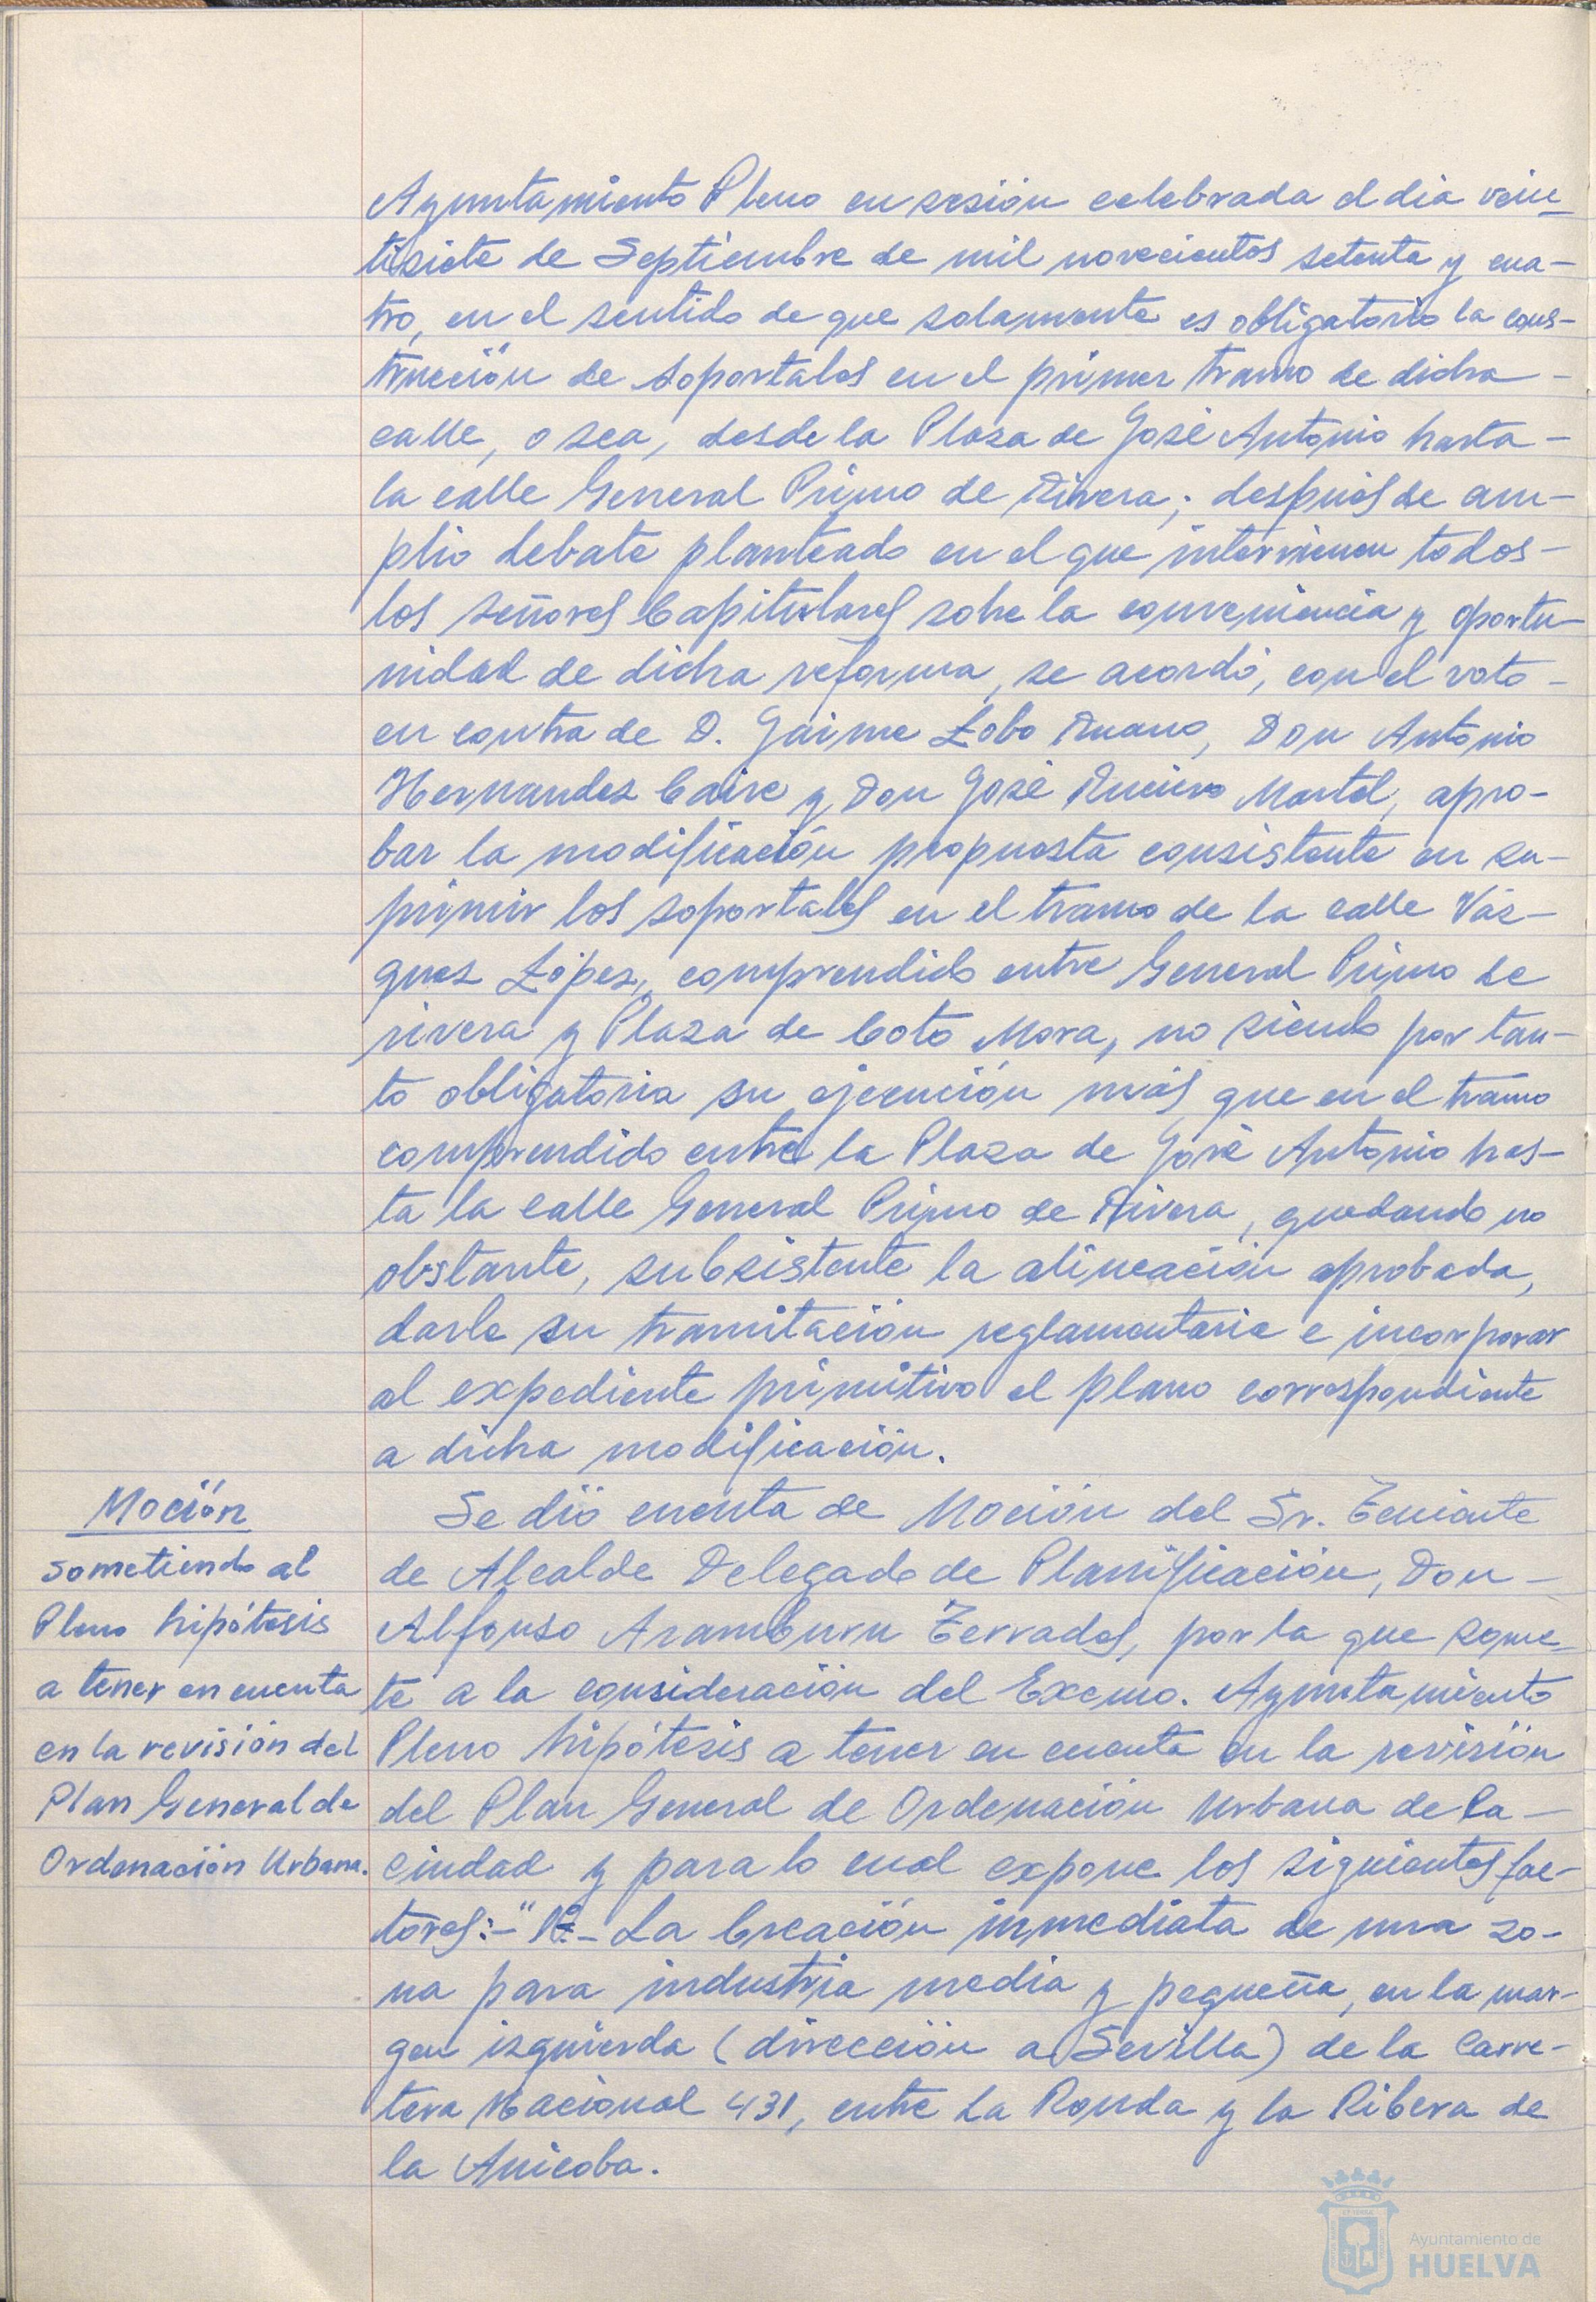 Ayuntamiento Pleno en sesión celebrada el dia vein-
tisiete de Septiembre de mil novecientos setenta y cua-
tro, en el sentido de que solamente es obligatorio la cons-
trucción de soportales en el primer tramo de dicha -
calle, o sea, desde la Plaza de José Antonio hasta -
la calle General Primo de Rivera; después de am-
plio debate planteado en el que intervienen todos -
los señores Capitulares sobre la conveniencia y oportu-
nidad de dicha reforma, se acordó, con el voto -
en contra de D. Jaime Lobo Ruano, Don Antonio
Hernandez Caire y Don José Rucivo Martel, apro-
bar la modificación propuesta consistente en su-
primir los soportales en el tramo de la calle Váz-
quez López, comprendido entre General Primo de
rivera y Plaza de Coto Mora, no siendo por tan-
to obligatoria su ejecución más que en el tramo
comprendido entre la Plaza de José Antonio has-
ta la calle General Primo de Rivera, quedando no
obstante, subsistente la alineación aprobada,
darle su tramitación reglamentaria e incorporar
al expediente primitivo el plano correspondiente
a dicha modificación.
Moción
sometiendo al
Pleno hipótesis
a tener en cuenta
en la revisión del
Plan General de
Ordenación Urbana.
Se dió cuenta de Moción del Sr. Teniente
de Alcalde Delegado de Planificación, Don -
Alfonso Aramburu Terrades, por la que some-
te a la consideración del Excmo. Ayuntamiento
Pleno hipótesis a tener en cuenta en la revisión
del Plan General de Ordenación Urbana de la -
ciudad y para lo cual expone los siguientes fac-
tores:-"1º.- La Creación inmediata de una zo-
na para industria media y pequeña, en la mar-
gen izquierda (dirección a Sevilla) de la Carre-
tera Nacional 431, entre La Ronda y la Ribera de
la Anicoba.
Ayuntamiento de
HUELVA